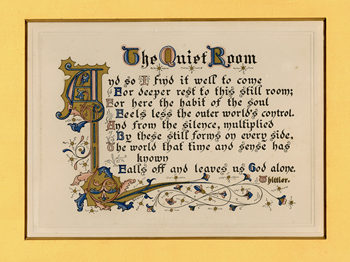 The Quiet Room
And so I find it well to come
For deeper rest to this still room;
For here the habit of the soul
Feels less the outer world's control.
And from the silence, multiplied
By these still forms on every side,
The world that time and sense has
known
Falls off and leaves us God alone.
Whittier.